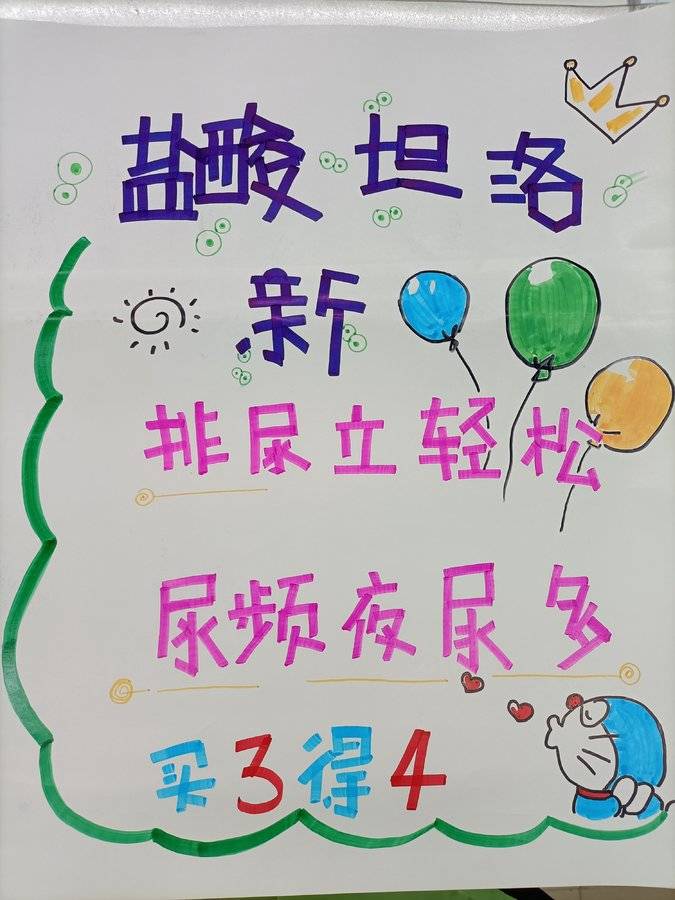 盐酸坦洛
新
排尿立轻松
尿频夜尿多
买3得4